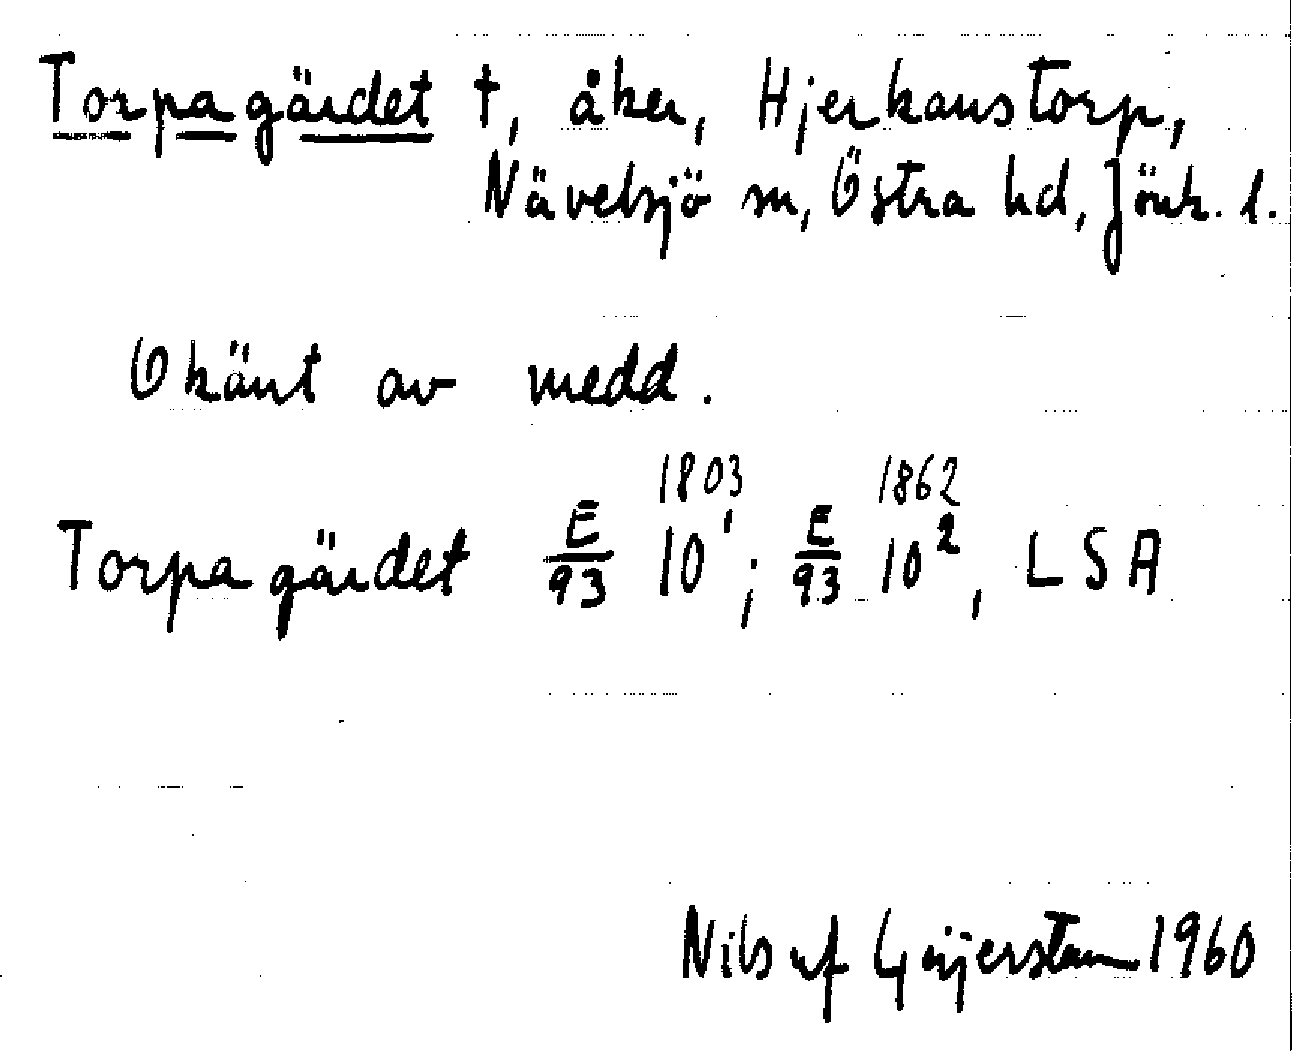 Torpagärdet †, åker, Hjerkanstorp,
Nävelsjö sn, Östra hd, Jönk. l.
Okänt av medd.
1803 1862
Torpagärdet E/93 10¹; E/93 10², LSA
Nils af Geijerstam 1960